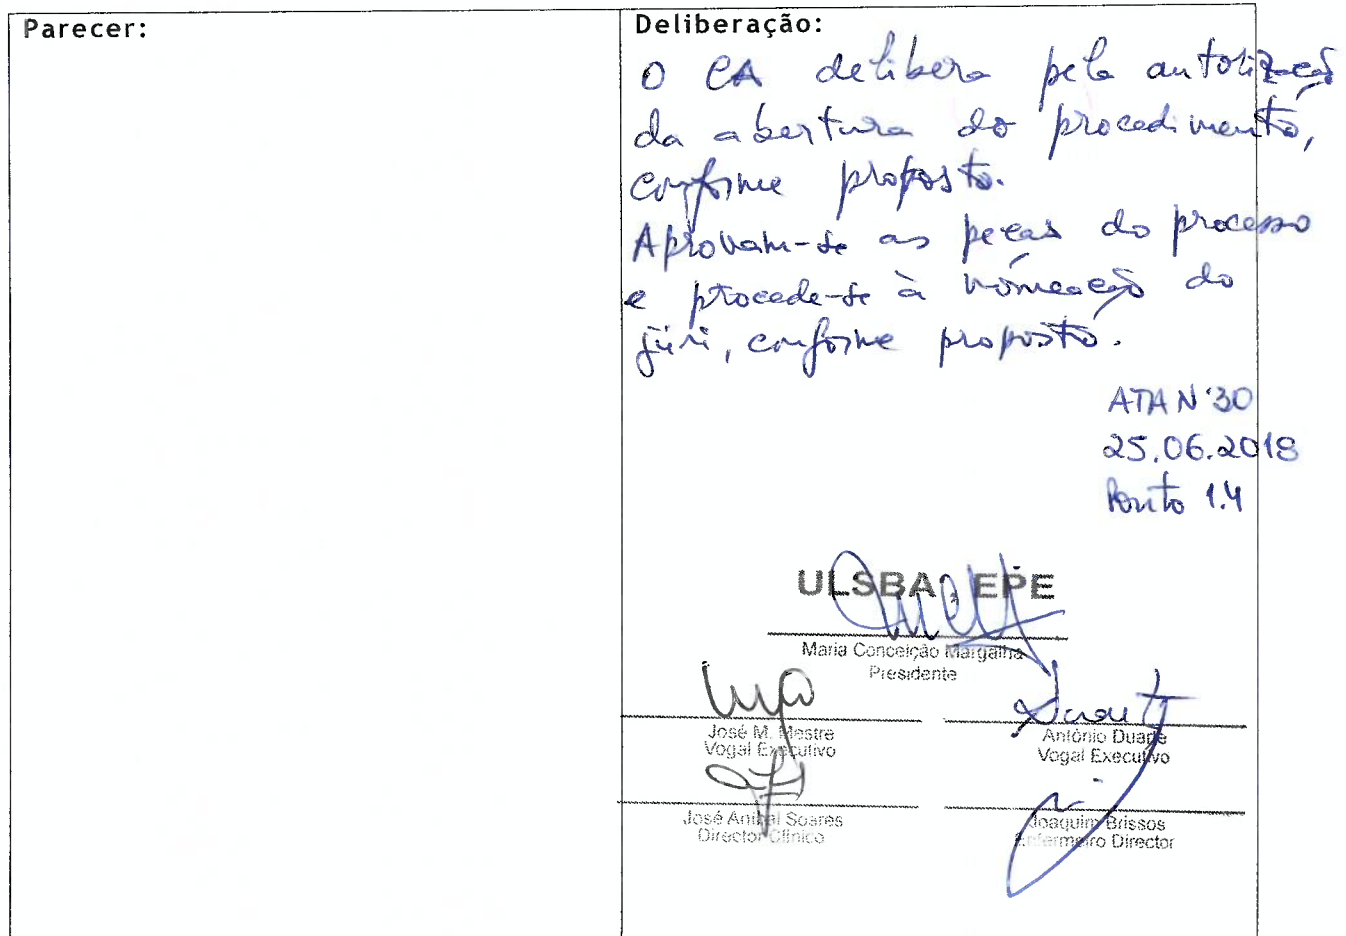 Parecer:
Deliberação:
O CA delibera pela autorização
da abertura do procedimento,
conforme proposto.
Aprovam-se as peças do processo
e procede-se à nomeação do
júri, conforme proposto.
ATA Nº30
25.06.2018
Ponto 1.4
ULSBA, EPE
Maria Conceição Margalha
Presidente
José M. Mestre
Vogal Executivo
António Duarte
Vogal Executivo
José Aníbal Soares
Director Clínico
Joaquim Brissos
Enfermeiro Director